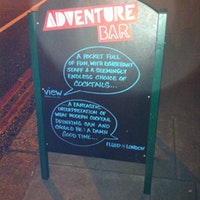 ADVENTURE
BAR
A POCKET FULL
OF FUN, WITH EXUBERANT
STAFF & A SEEMINGLY
ENDLESS CHOICE OF
COCKTAILS...
VIEW
A FANTASTIC
INTERPRETATION OF
WHAT MODERN COCKTAIL
DRINKING CAN AND
SHOULD BE: A DAMN
GOOD TIME...
FLUID LONDON